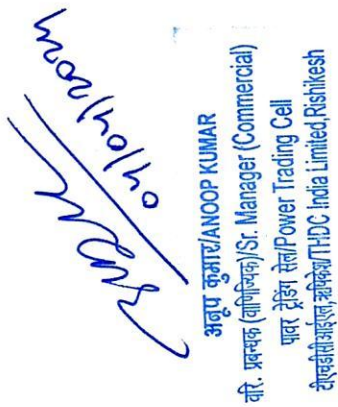 अनूप कुमार/ANOOP KUMAR
वरि. प्रबन्धक (वाणिज्यिक)/Sr. Manager (Commercial)
पावर ट्रेडिंग सेल/Power Trading Cell
टीएचडीसीआईएल,ऋषिकेश/THDC India Limited,Rishikesh